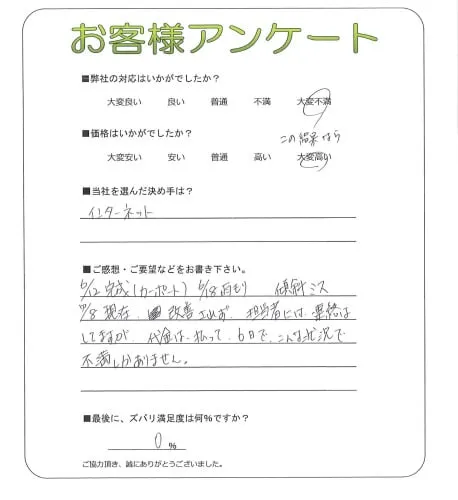 お客様アンケート
■弊社の対応はいかがでしたか？
大変良い 良い 普通 不満 大変不満
■価格はいかがでしたか？
この結果なら
大変安い 安い 普通 高い 大変高い
■当社を選んだ決め手は？
インターネット
■ご感想・ご要望などをお書き下さい。
6/12 完成(カーポート) 6/18雨もり 傾斜ミス
10/8 現在、改善されず、担当者には、連絡は
してますが、代金は、払って、6日で、こんな状況で
不満しかありません。
■最後に、ズバリ満足度は何%ですか？
0 %
ご協力頂き、誠にありがとうございました。